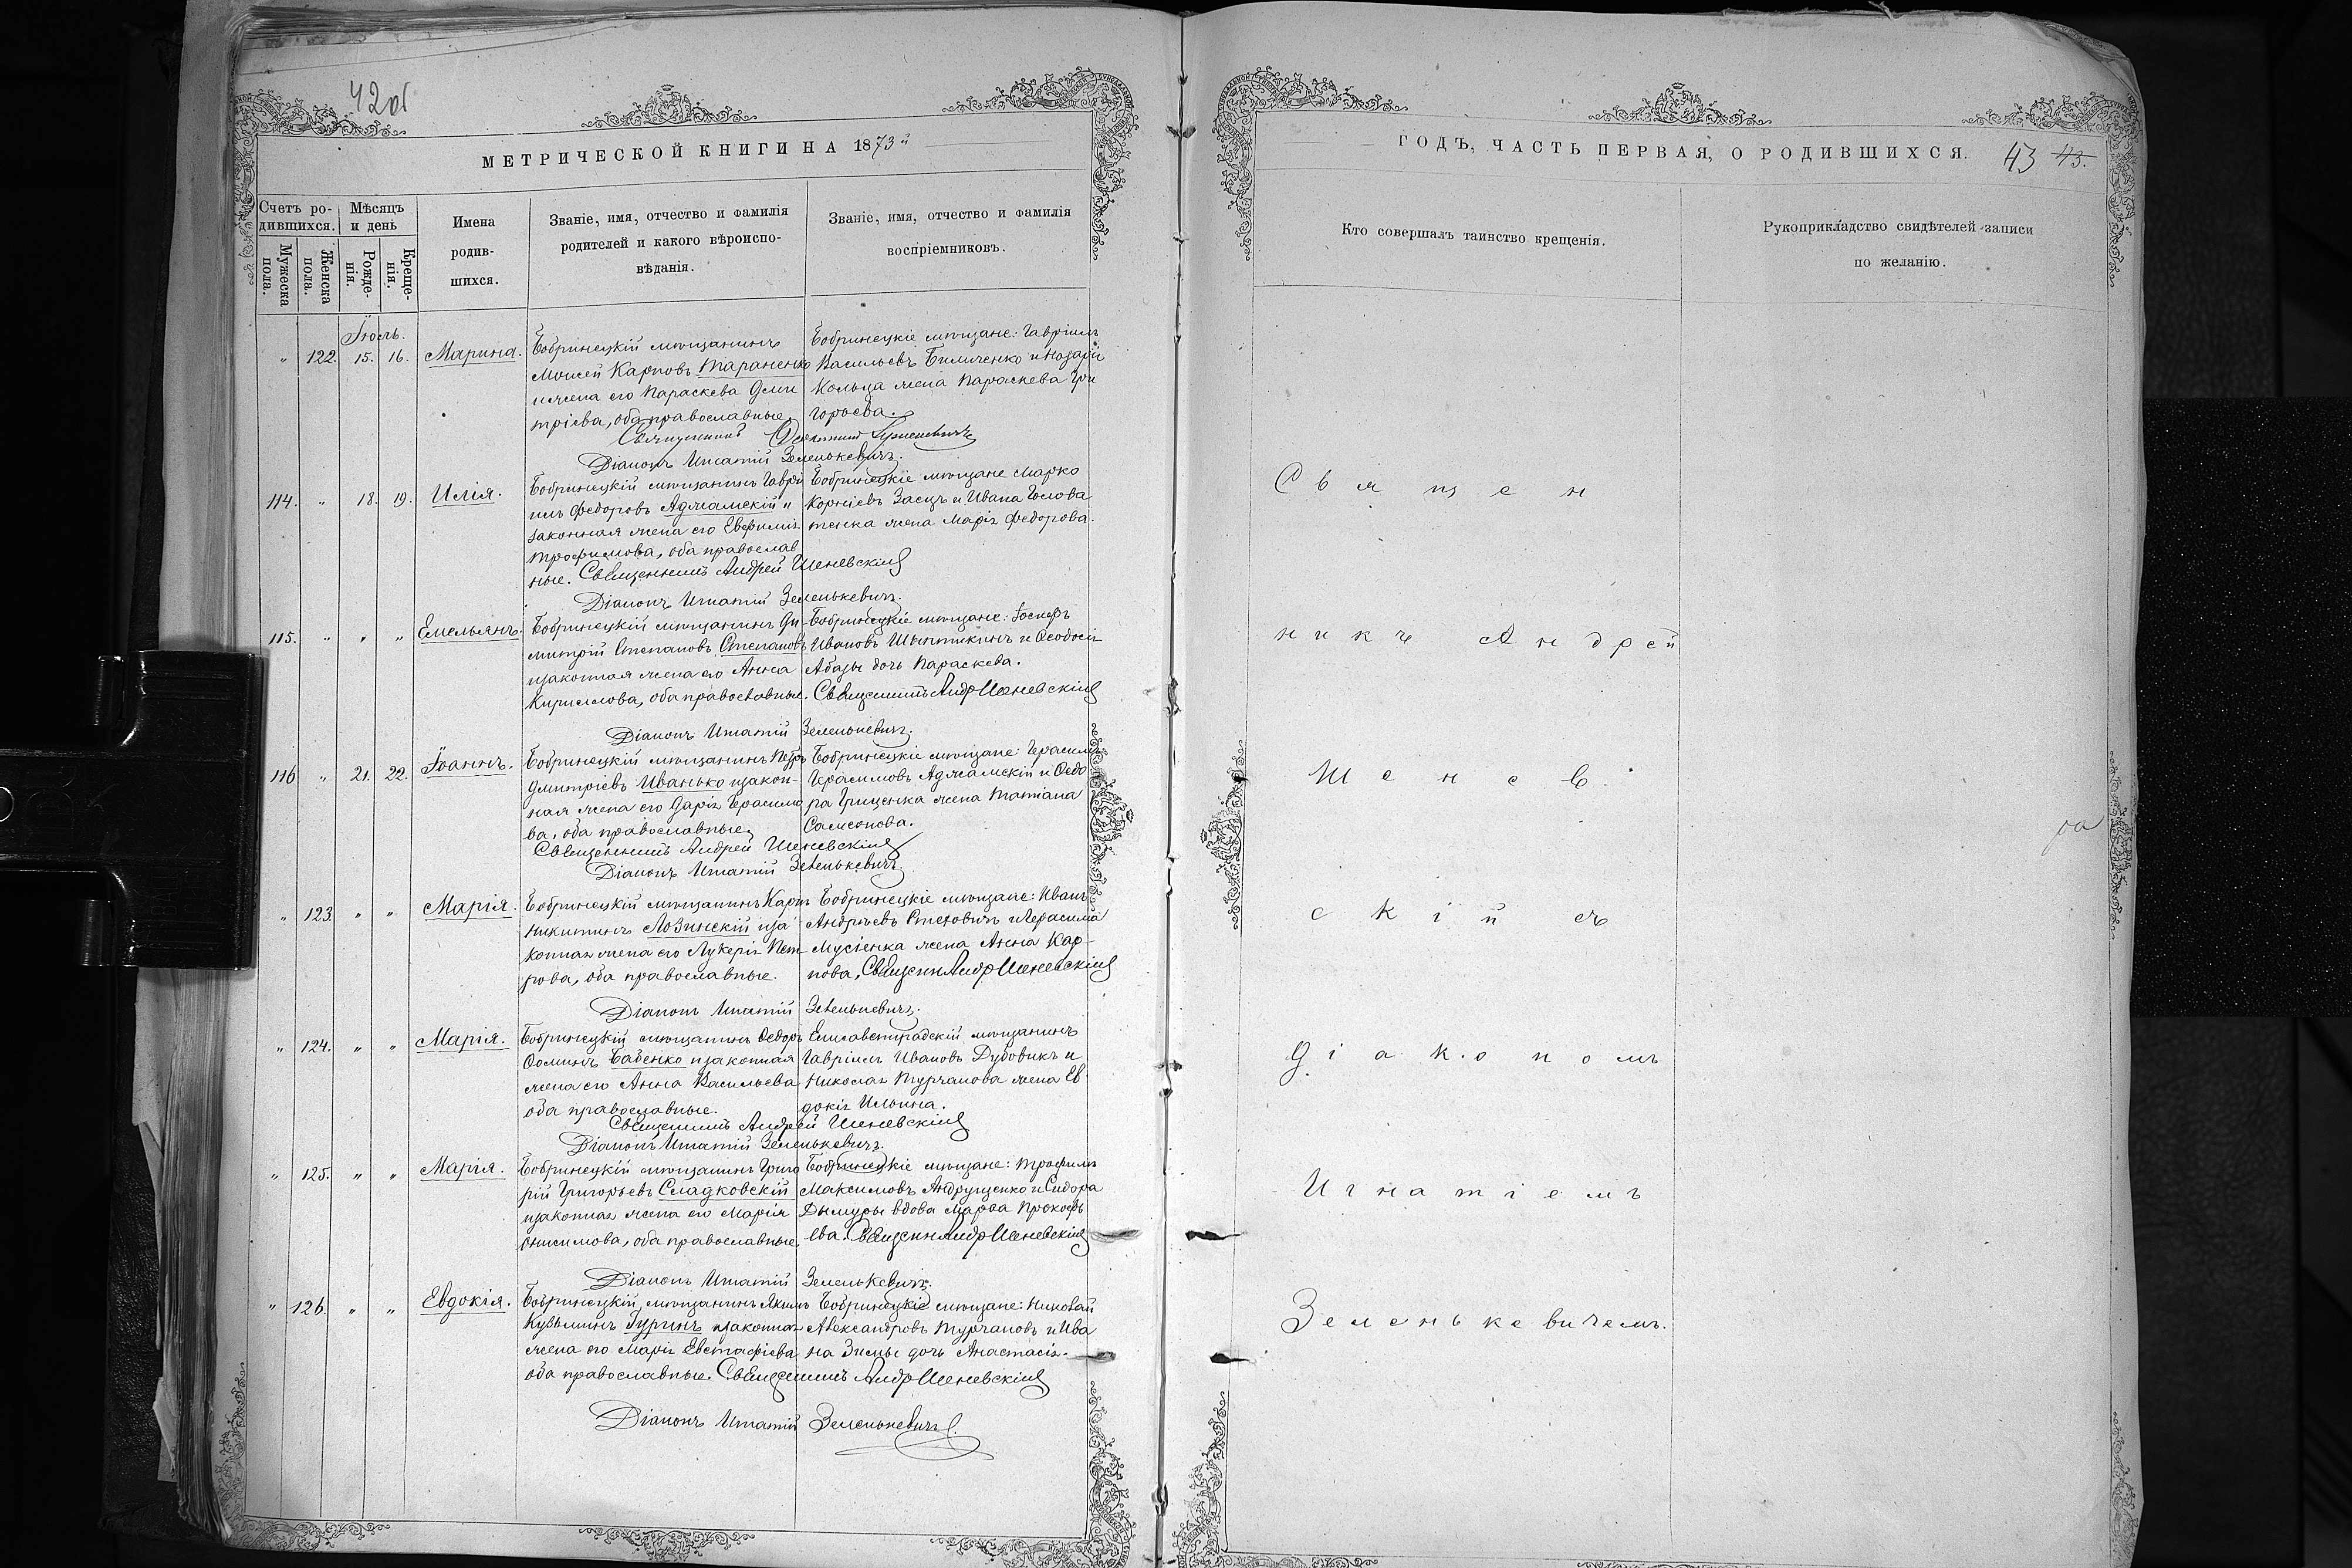 42об
МЕТРИЧЕСКОЙ КНИГИ НА 1873й
Счетъ родившихся.
Мужеска пола.
Женска пола.
Мѣсяцъ и день
Рожденія.
Крещенія.
Имена родившихся.
Званіе, имя, отчество и фамилія
родителей и какого вѣроиспо-
вѣданія.
Званіе, имя, отчество и фамилія
воспріемниковъ.
Іюль.
" 122. 15. 16. Марина.
Бобринецкій мѣщанинъ
Моисей Карповъ Тараненко
и жена его Параскева Дми
тріева, оба православные.
Бобринецкіе мѣщане: Гавріилъ
Васильевъ Биличенко и Назарія
Кольца жена Параскева Гри
горьева.
Священникъ
Діаконъ Игнатій Зеленькевичъ.
114. " 18. 19. Илія.
Бобринецкій мѣщанинъ Гаврі
илъ Федоровъ Аджамскій и
законная жена его Евфимія
Трофимова, оба православ
ные.
Бобринецкіе мѣщане Марко
Корніевъ Заецъ и Ивана Голова
тенка жена Марія Федорова.
Священникъ Андрей Шеневскій
Діаконъ Игнатій Зеленькевичъ.
115. " " " Емельянъ.
Бобринецкій мѣщанинъ Ди-
митрій Степановъ Степановъ
и законная жена его Анна
Кириллова, оба православные.
Бобринецкіе мѣщане: Іосифъ
Ивановъ Шыптикинъ и Феодосія
Абазы дочь Параскева.
Священникъ Андр Шеневскій
Діаконъ Игнатій Зеленькевичъ.
116 " 21. 22. Іоаннъ.
Бобринецкій мѣщанинъ Петръ
Дмитріевъ Иванько и закон-
ная жена его Дарія Герасимо
ва, оба православные.
Бобринецкіе мѣщане: Герасимъ
Герасимовъ Аджамскій и Федо
ра Гриценка жена Татіана
Самсонова.
Священникъ Андрей Шеневскій
Діаконъ Игнатій Зеленькевичъ
" 123. " " Марія.
Бобринецкій мѣщанинъ Карпъ
Никитинъ Лозинскій и за
конная жена его Лукерія Пет-
рова, оба православные.
Бобринецкіе мѣщане: Иванъ
Андрѣевъ Стеховичъ и Герасима
Мусіенка жена Анна Кар-
пова,
Священн Андр Шеневскій
Діаконъ Игнатій Зеленькевичъ.
" 124. " " Марія.
Бобринецкій мѣщанинъ Федоръ
Фоминъ Бабенко и законная
жена его Анна Васильева
оба православные.
Елисаветградскій мѣщанинъ
Гавріилъ Ивановъ Дубовикъ и
Николая Турчанова жена Ев
докія Ильина.
Священникъ Андрей Шеневскій
Діаконъ Игнатій Зеленькевичъ.
" 125. " " Марія.
Бобринецкій мѣщанинъ Григо
рій Григорьевъ Сладковскій
и законная жена его Марія
Онисимова, оба православные,
Бобринецкіе мѣщане: Трофимъ
Максимовъ Андрущенко и Сидора
Дымуры вдова Марфа Прокофь
ева.
Священн Андр Шеневскій
Діаконъ Игнатій Зеленькевичъ.
" 126. " " Евдокія.
Бобринецкій, мѣщанинъ Якимъ
Кузьминъ Гуринъ и законная
жена его Марія Евстафіева
оба православные.
Бобринецкіе мѣщане: Николай
Александровъ Турчановъ и Ива
на Зимы дочь Анастасія.
Священникъ Андр Шеневскій
Діаконъ Игнатій Зеленькевичъ.
ГОДЪ, ЧАСТЬ ПЕРВАЯ, О РОДИВШИХСЯ.
43 43.
Кто совершалъ таинство крещенія.
Рукоприкладство свидѣтелей записи
по желанію.
Священ
никъ Андрей
Шенев
скій съ
Діакономъ
Игнатіемъ
Зеленькевичемъ.